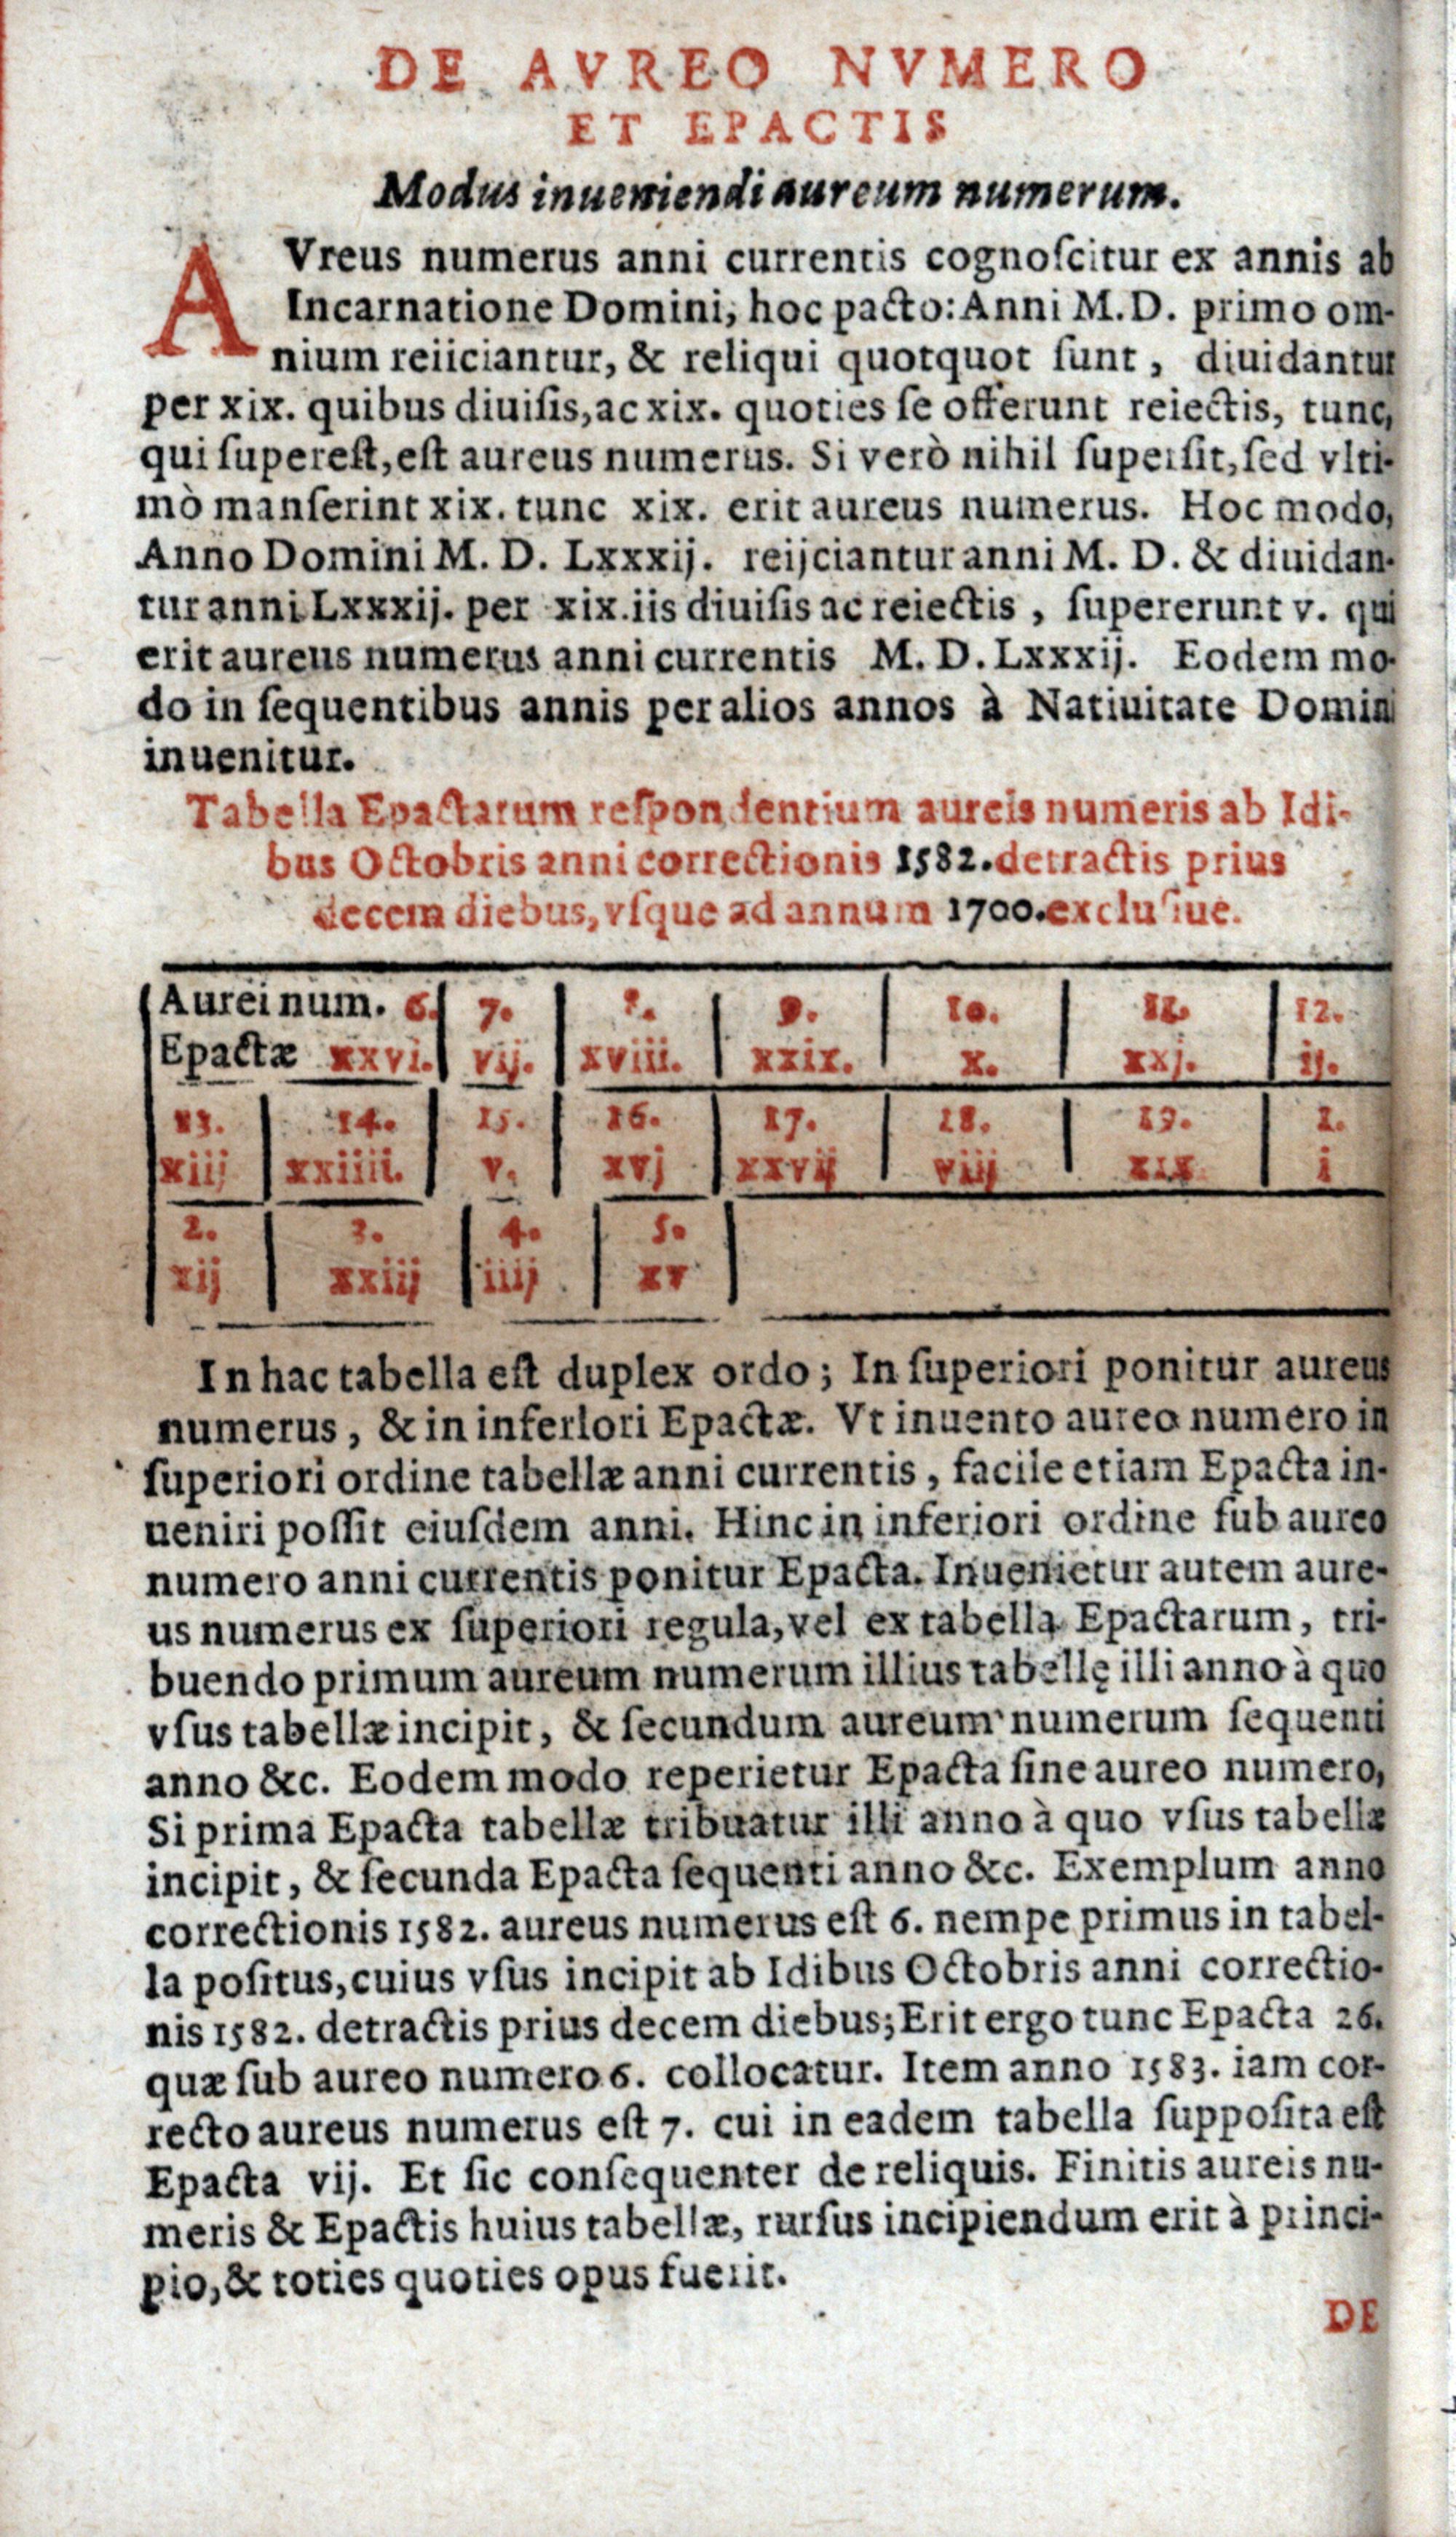 DE AVREO NVMERO
ET EPACTIS
Modus inueniendi aureum numerum.
AVreus numerus anni currentis cognoſcitur ex annis ab
Incarnatione Domini, hoc pacto: Anni M.D. primo om-
nium reiiciantur, & reliqui quotquot ſunt, diuidantur
per xix. quibus diuiſis, ac xix. quoties ſe offerunt reiectis, tunc,
qui ſupereſt, eſt aureus numerus. Si verò nihil ſuperſit, ſed vlti-
mò manſerint xix. tunc xix. erit aureus numerus. Hoc modo,
Anno Domini M. D. Lxxxij. reijciantur anni M. D. & diuidan-
tur anni Lxxxij. per xix. iis diuiſis ac reiectis, ſupererunt v. qui
erit aureus numerus anni currentis M. D. Lxxxij. Eodem mo-
do in ſequentibus annis per alios annos à Natiuitate Domini
inuenitur.
Tabella Epactarum reſpondentium aureis numeris ab Idi-
bus Octobris anni correctionis 1582. detractis prius
decem diebus, vſque ad annum 1700. excluſiue.
Aurei num. 6. 7. 8. 9. 10. 11. 12.
Epactæ xxvi. vij. xviii. xxix. x. xxj. ij.
13. 14. 15. 16. 17. 18. 19. 1.
xiij xxiiii. v. xvj xxvij viij xix i
2. 3. 4. 5.
xij xxiij iiij xv
In hac tabella eſt duplex ordo; In ſuperiori ponitur aureus
numerus, & in inferlori Epactæ. Vt inuento aureo numero in
ſuperiori ordine tabellæ anni currentis, facile etiam Epacta in-
ueniri poſſit eiuſdem anni. Hinc in inferiori ordine ſub aureo
numero anni currentis ponitur Epacta. Inuenietur autem aure-
us numerus ex ſuperiori regula, vel ex tabella Epactarum, tri-
buendo primum aureum numerum illius tabellę illi anno à quo
vſus tabellæ incipit, & ſecundum aureum numerum ſequenti
anno &c. Eodem modo reperietur Epacta ſine aureo numero,
Si prima Epacta tabellæ tribuatur illi anno à quo vſus tabellæ
incipit, & ſecunda Epacta ſequenti anno &c. Exemplum anno
correctionis 1582. aureus numerus eſt 6. nempe primus in tabel-
la poſitus, cuius vſus incipit ab Idibus Octobris anni correctio-
nis 1582. detractis prius decem diebus; Erit ergo tunc Epacta 26.
quæ ſub aureo numero 6. collocatur. Item anno 1583. iam cor-
recto aureus numerus eſt 7. cui in eadem tabella ſuppoſita eſt
Epacta vij. Et ſic conſequenter de reliquis. Finitis aureis nu-
meris & Epactis huius tabellæ, rurſus incipiendum erit à princi-
pio, & toties quoties opus fuerit.
DE